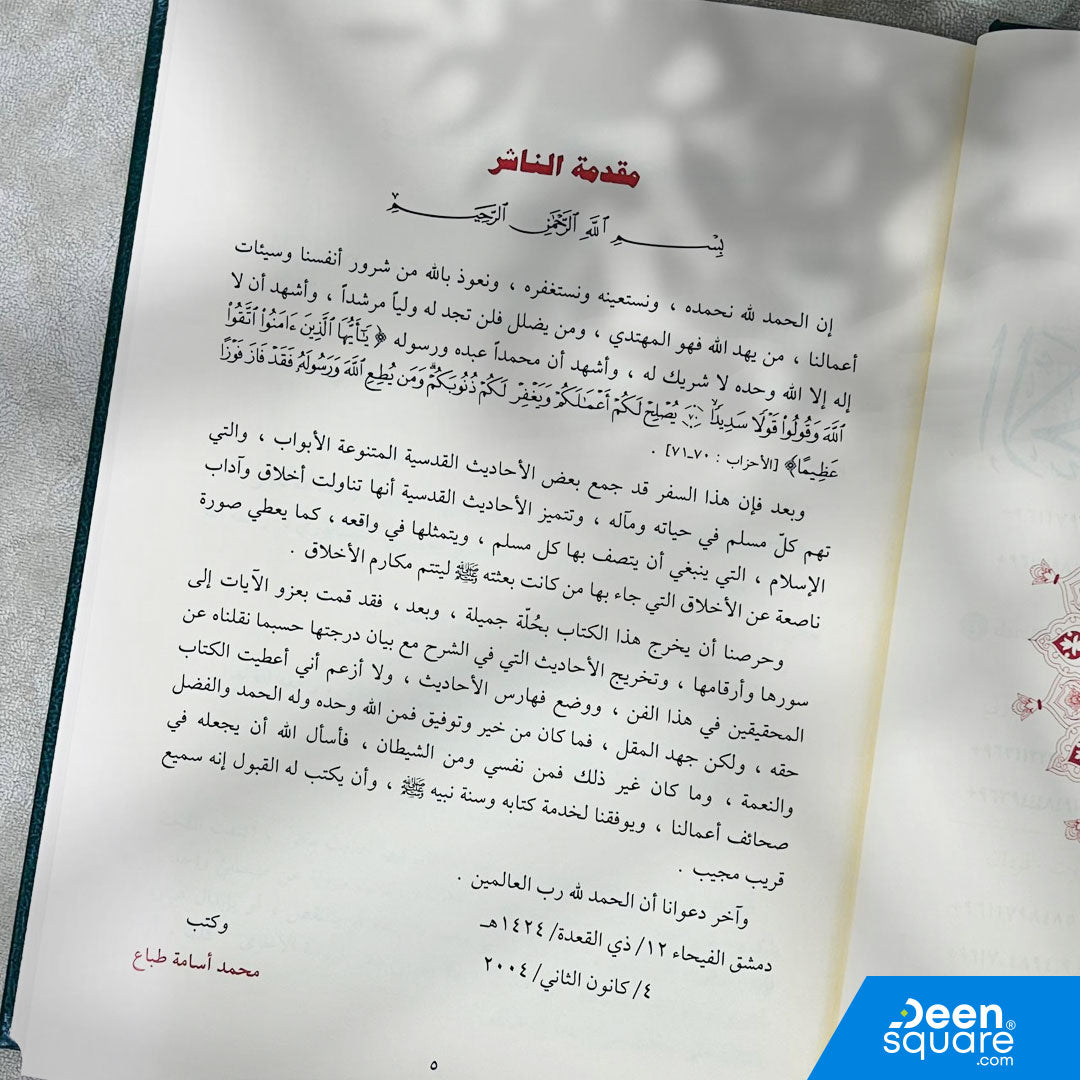 مقدمة الناشر
بِسْمِ ٱللَّهِ ٱلرَّحْمَٰنِ ٱلرَّحِيمِ
إن الحمد لله نحمده ، ونستعينه ونستغفره ، ونعوذ بالله من شرور أنفسنا وسيئات
أعمالنا ، من يهد الله فهو المهتدي ، ومن يضلل فلن تجد له ولياً مرشداً ، وأشهد أن لا
إله إلا الله وحده لا شريك له ، وأشهد أن محمداً عبده ورسوله ﴿ يَٰٓأَيُّهَا ٱلَّذِينَ ءَامَنُوا۟ ٱتَّقُوا۟
ٱللَّهَ وَقُولُوا۟ قَوْلًا سَدِيدًا ۝٧٠ يُصْلِحْ لَكُمْ أَعْمَٰلَكُمْ وَيَغْفِرْ لَكُمْ ذُنُوبَكُمْ ۗ وَمَن يُطِعِ ٱللَّهَ وَرَسُولَهُۥ فَقَدْ فَازَ فَوْزًا
عَظِيمًا﴾ [الأحزاب : ٧٠ـ٧١] .
وبعد فإن هذا السفر قد جمع بعض الأحاديث القدسية المتنوعة الأبواب ، والتي
تهم كلّ مسلم في حياته ومآله ، وتتميز الأحاديث القدسية أنها تناولت أخلاق وآداب
الإسلام ، التي ينبغي أن يتصف بها كل مسلم ، ويتمثلها في واقعه ، كما يعطي صورة
ناصعة عن الأخلاق التي جاء بها من كانت بعثته ﷺ ليتتم مكارم الأخلاق .
وحرصنا أن يخرج هذا الكتاب بحُلّة جميلة ، وبعد ، فقد قمت بعزو الآيات إلى
سورها وأرقامها ، وتخريج الأحاديث التي في الشرح مع بيان درجتها حسبما نقلناه عن
المحققيقين في هذا الفن ، ووضع فهارس الأحاديث ، ولا أزعم أني أعطيت الكتاب
حقه ، ولكن جهد المقل ، فما كان من خير وتوفيق فمن الله وحده وله الحمد والفضل
والنعمة ، وما كان غير ذلك فمن نفسي ومن الشيطان ، فأسأل الله أن يجعله في
صحائف أعمالنا ، ويوفقنا لخدمة كتابه وسنة نبيه ﷺ ، وأن يكتب له القبول إنه سميع
قريب مجيب .
وآخر دعوانا أن الحمد لله رب العالمين .
دمشق الفيحاء ١٢/ ذي القعدة/ ١٤٢٤هـ
٤/ كانون الثاني/ ٢٠٠٤
وكتب
محمد أسامة طباع
٥
Deen
square®
.com